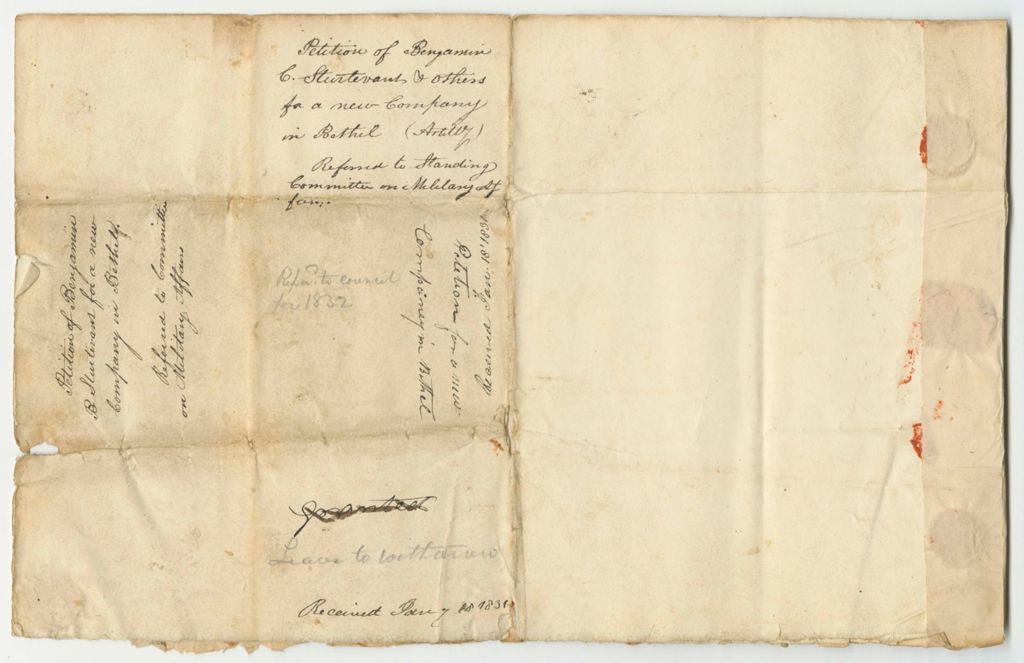 Petition of Benjamin
C. Sturtevant & others
for a new Company
in Bethel (Artilly)
Referred to Standing
Committee on Military Af
fairs.
Petition of Benjamin
B Sturtevant for a new
Company in Bethel
Referred to Committee
on Military Affairs
Refer. to council
for 1832
Received Jan. 18, 1831
Petition for a new
Company in Bethel
granted
Leave to withdraw
Received Jany 18 1831